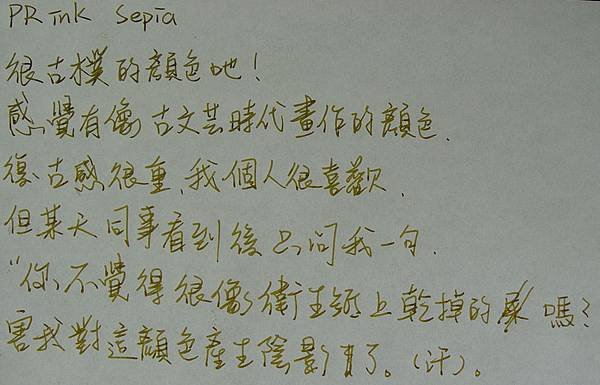 PR ink Sepia
很古樸的顏色吔！
感覺有像古文芸時代畫作的顏色.
復古感很重、我個人很喜歡.
但某天同事看到後只問我一句.
"你不覺得很像衛生紙上乾掉的屎嗎?
害我對這顏色產生陰影了。(汗)。